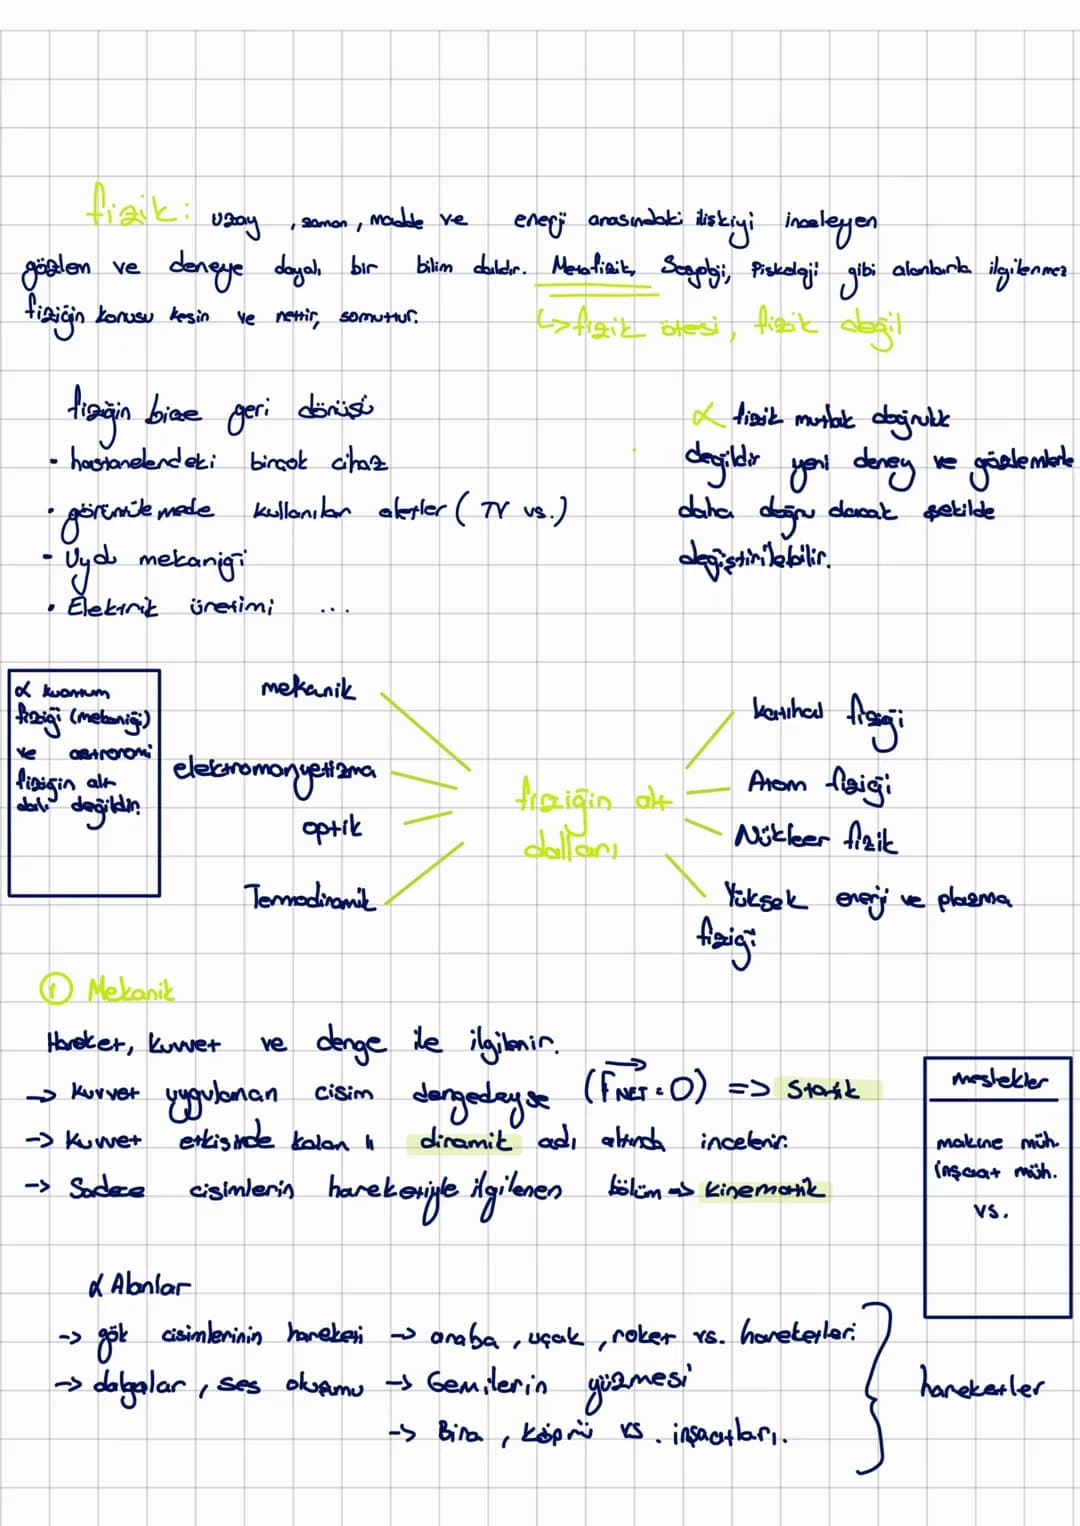 fizik: uzay, zaman, madde ve enerji arasındaki ilişkiyi inceleyen
gözlem ve deneye dayalı bir bilim dalıdır. Metafizik, Sosyoloji, Piskoloji gibi alanlarla ilgilenmez
fiziğin konusu kesin ve nettir, somuttur.
↳>fizik ötesi, fizik değil
fiziğin bize geri dönüşü
• hastanelerdeki birçok cihaz
• görüntülemede kullanılan aletler (TV vs.)
- Uydu mekaniği
• Elektrik üretimi ...
α fizik mutlak doğruluk
değildir yeni deney ve gözlemlerle
daha doğru olacak şekilde
değiştirilebilir.
α kuantum
fiziği (mekaniği)
ve astronomi
fiziğin alt
dalı değildir.
mekanik
elektromanyetizma
optik
Termodinamik
fiziğin alt
dalları
katıhal fiziği
Atom fiziği
Nükleer fizik
Yüksek enerji ve plazma
fiziği
① Mekanik
Hareket, kuvvet ve denge ile ilgilenir.
-> Kuvvet uygulanan cisim dengedeyse (F⃗NET = 0) => Statik
-> Kuvvet etkisinde kalan " dinamik adı altında incelenir.
-> Sadece cisimlerin hareketiyle ilgilenen bölüm => kinematik
meslekler
makine müh.
inşaat müh.
vs.
α Alanlar
-> gök cisimlerinin hareketi -> araba, uçak, roket vs. hareketleri
-> dalgalar, ses oluşumu -> Gemilerin yüzmesi
-> Bina, köprü vs. inşaatları.
hareketler